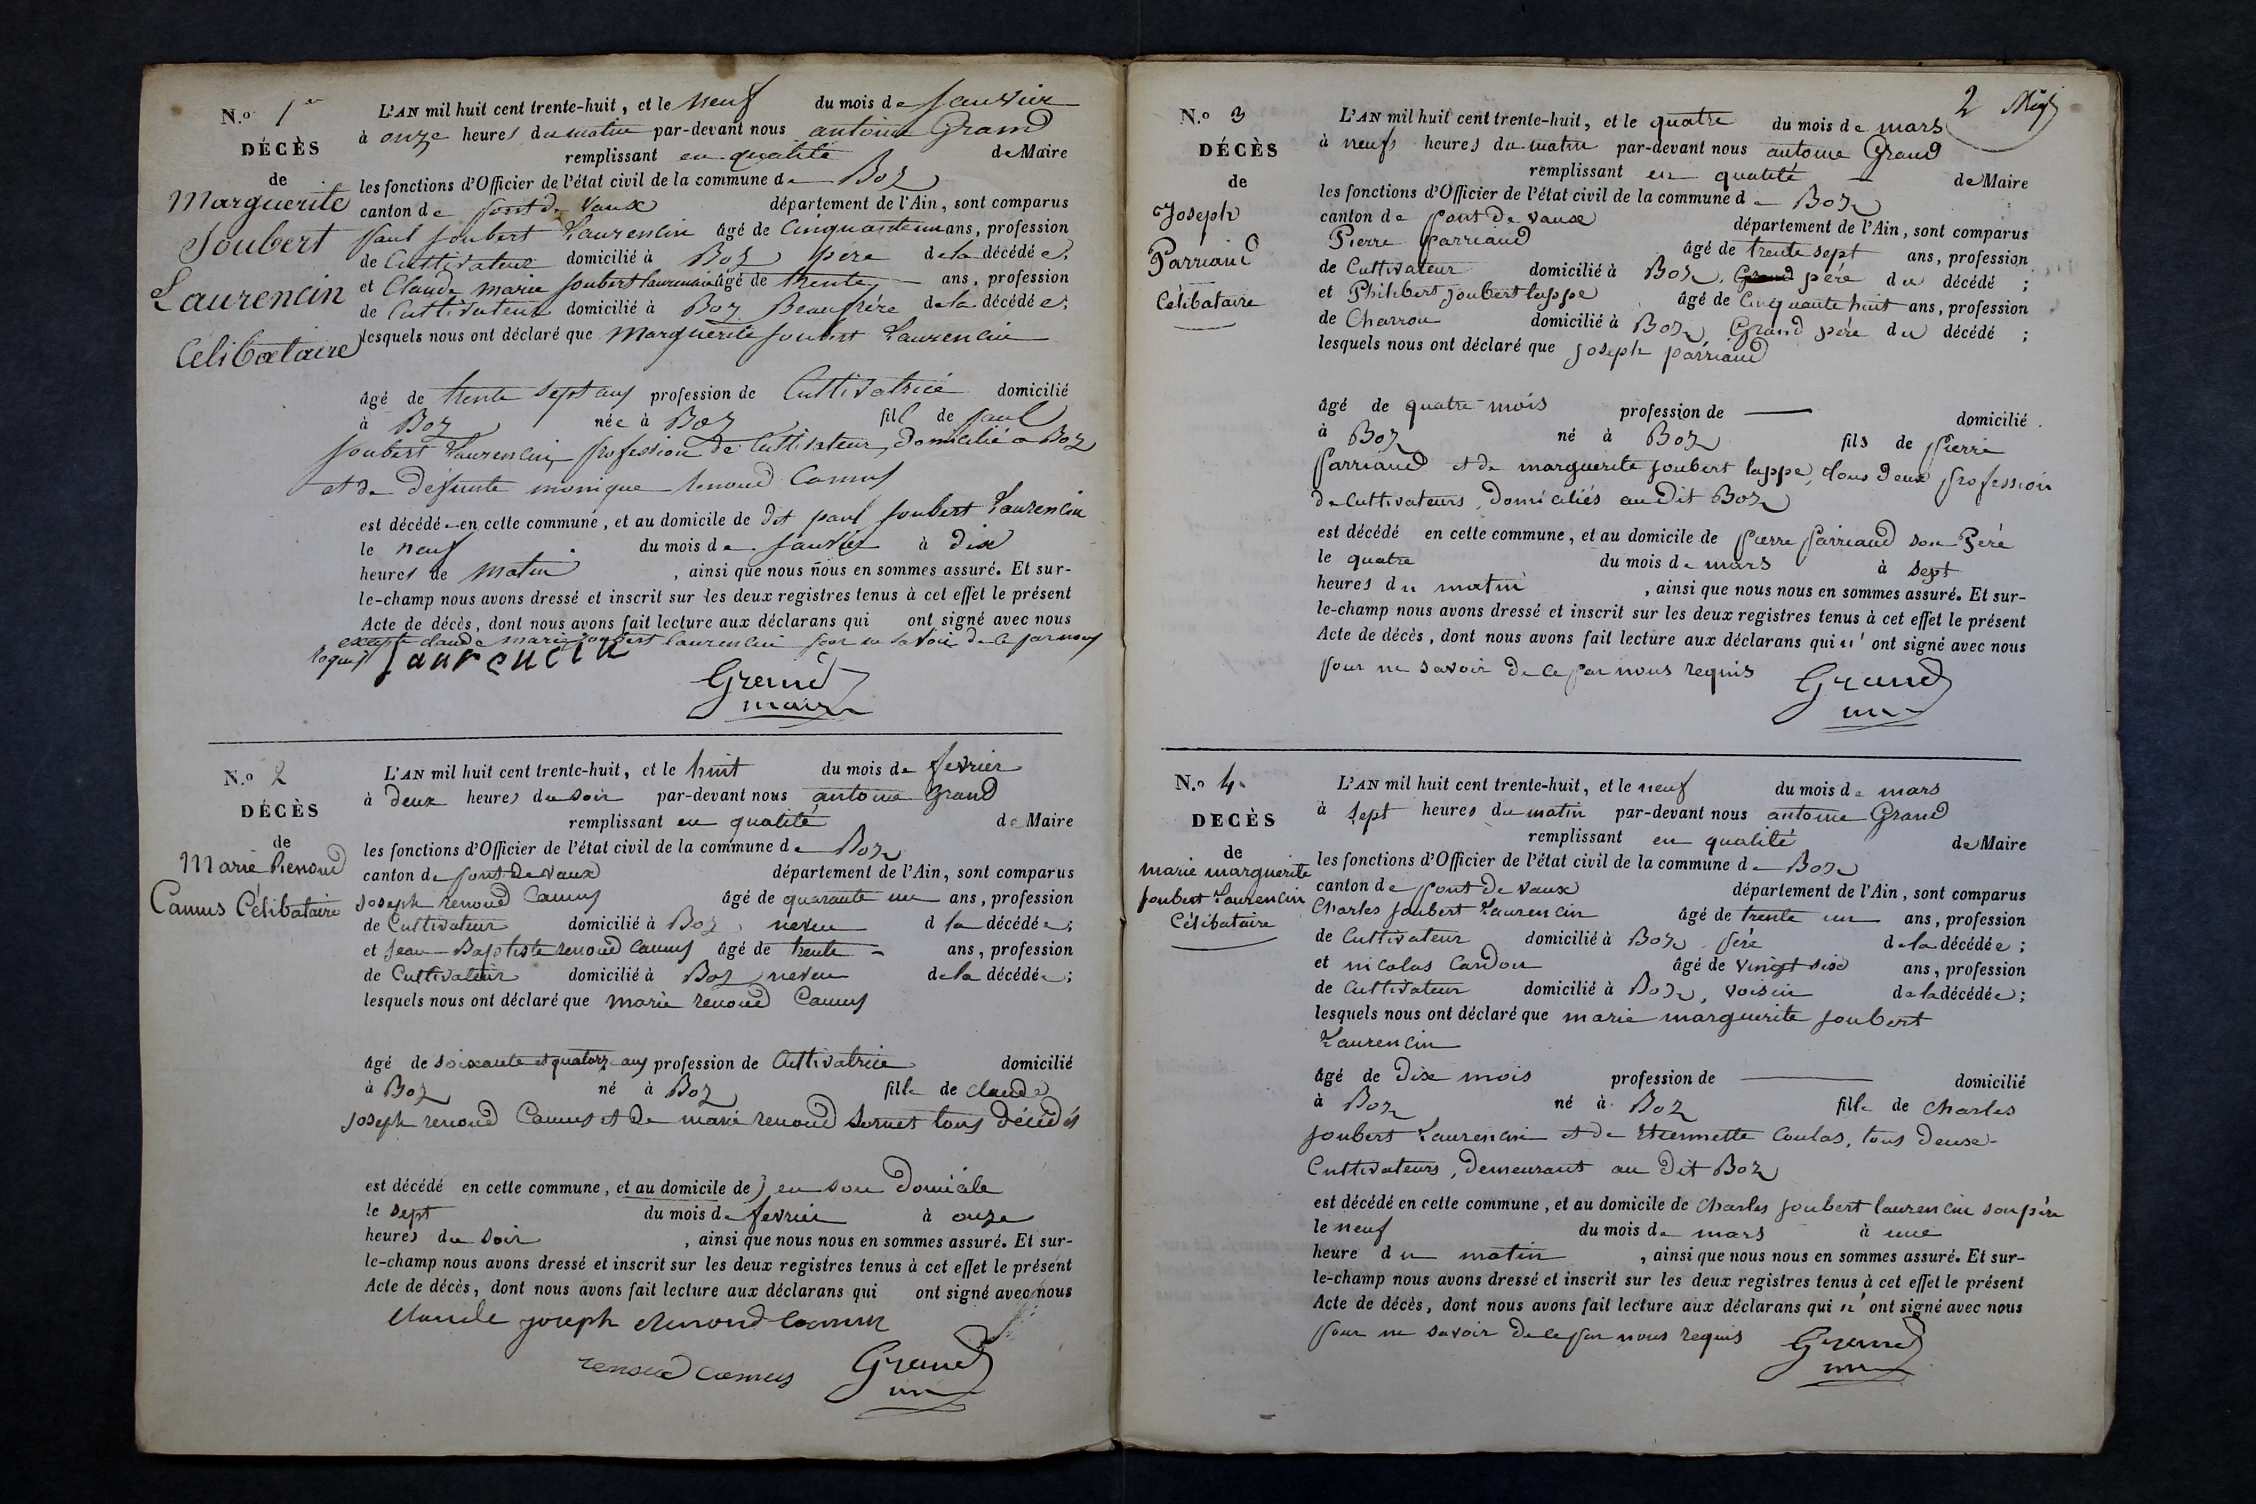 N.º 1er
DÉCÈS
de
Marguerite
Joubert
Laurencin
Célibataire
L'AN mil huit cent trente-huit, et le neuf du mois de Janvier
à onze heures du matin par-devant nous antoine Grand
remplissant en qualité de Maire
les fonctions d'Officier de l'état civil de la commune de Boz
canton de pont de Vaux département de l'Ain, sont comparus
paul Joubert Laurencin âgé de Cinquante un ans, profession
de Cultivateur domicilié à Boz père de la décédée;
et Claude marie Joubert laurencin âgé de trente ans, profession
de Cultivateur domicilié à Boz Beaufrère de la décédée;
lesquels nous ont déclaré que Marguerite Joubert Laurencin
âgé de trente sept ans profession de Cultivatrice domicilié
à Boz née à Boz fill de paul
Joubert Laurencin, profession de Cultivateur, domicilié a Boz
et de défunte monique renoud Camus
est décédée en cette commune, et au domicile de dit paul Joubert Laurencin
le neuf du mois de Janvier à dix
heures de matin, ainsi que nous nous en sommes assuré. Et sur-
le-champ nous avons dressé et inscrit sur les deux registres tenus à cet effet le présent
Acte de décès, dont nous avons fait lecture aux déclarans qui ont signé avec nous
excepté claude marie joubert laurencin pour ne savoir de ce par nous
requis Laurencin
Grand
maire
N.º 2
DÉCÈS
de
Marie Renoud
Camus Célibataire
L'AN mil huit cent trente-huit, et le huit du mois de fevrier
à deux heures du soir par-devant nous antoine Grand
remplissant en qualité de Maire
les fonctions d'Officier de l'état civil de la commune de Boz
canton de pont de Vaux département de l'Ain, sont comparus
Joseph renoud Camus âgé de quarante un ans, profession
de Cultivateur domicilié à Boz, neveu d la décédée;
et Jean-Baptiste renoud Camus âgé de trente ans, profession
de Cultivateur domicilié à Boz neveu de la décédée;
lesquels nous ont déclaré que marie renoud Camus
âgé de soixante et quatorze ans profession de Cultivatrice domicilié
à Boz né à Boz fille de claude
joseph renoud Camus et de marie renoud Sornet tous décédés
est décédé en cette commune, et au domicile de en son Domicile
le sept du mois de fevrier à onze
heures du soir, ainsi que nous nous en sommes assuré. Et sur-
le-champ nous avons dressé et inscrit sur les deux registres tenus à cet effet le présent
Acte de décès, dont nous avons fait lecture aux déclarans qui ont signé avec nous
claude joseph renoud camus
renoud camus Grand
2
N.º 3
DÉCÈS
de
Joseph
Parriaud
Célibataire
L'AN mil huit cent trente-huit, et le quatre du mois de mars
à neufs heures du matin par-devant nous antoine Grand
remplissant en qualité de Maire
les fonctions d'Officier de l'état civil de la commune de Boz
canton de pont de vaux département de l'Ain, sont comparus
Pierre parriaud âgé de trente sept ans, profession
de Cultivateur domicilié à Boz, Grand père du décédé;
et Philibert joubert lappe âgé de Cinquante huit ans, profession
de Charron domicilié à Boz Grand père du décédé;
lesquels nous ont déclaré que joseph parriaud
âgé de quatre mois profession de domicilié
à Boz né à Boz fils de pierre
parriaud et de marguerite joubert lappe, tous deux profession
de cultivateurs, domiciliés au dit Boz
est décédé en cette commune, et au domicile de pierre parriaud son Père
le quatre du mois de mars à sept
heures du matin, ainsi que nous nous en sommes assuré. Et sur-
le-champ nous avons dressé et inscrit sur les deux registres tenus à cet effet le présent
Acte de décès, dont nous avons fait lecture aux déclarans qui n'ont signé avec nous
pour ne savoir de ce par nous requis Grand
N.º 4.
DECÈS
de
marie marguerite
joubert Laurencin
Célibataire
L'AN mil huit cent trente-huit, et le neuf du mois de mars
à sept heures du matin par-devant nous antoine Grand
remplissant en qualité de Maire
les fonctions d'Officier de l'état civil de la commune de Boz
canton de pont de vaux département de l'Ain, sont comparus
Charles Joubert Laurencin âgé de trente un ans, profession
de Cultivateur domicilié à Boz, père de la décédée;
et nicolas Cardon âgé de vingt six ans, profession
de Cultivateur domicilié à Boz, voisin de la décédée;
lesquels nous ont déclaré que marie marguerite joubert
Laurencin
âgé de dix mois profession de domicilié
à Boz né à Boz fille de charles
joubert Laurencin et de Etiennette Coulas, tous deux
Cultivateurs, demeurant au dit Boz
est décédé en cette commune, et au domicile de Charles joubert laurencin son père
le neuf du mois de mars à une
heure du matin, ainsi que nous nous en sommes assuré. Et sur-
le-champ nous avons dressé et inscrit sur les deux registres tenus à cet effet le présent
Acte de décès, dont nous avons fait lecture aux déclarans qui n'ont signé avec nous
pour ne savoir de ce par nous requis Grand